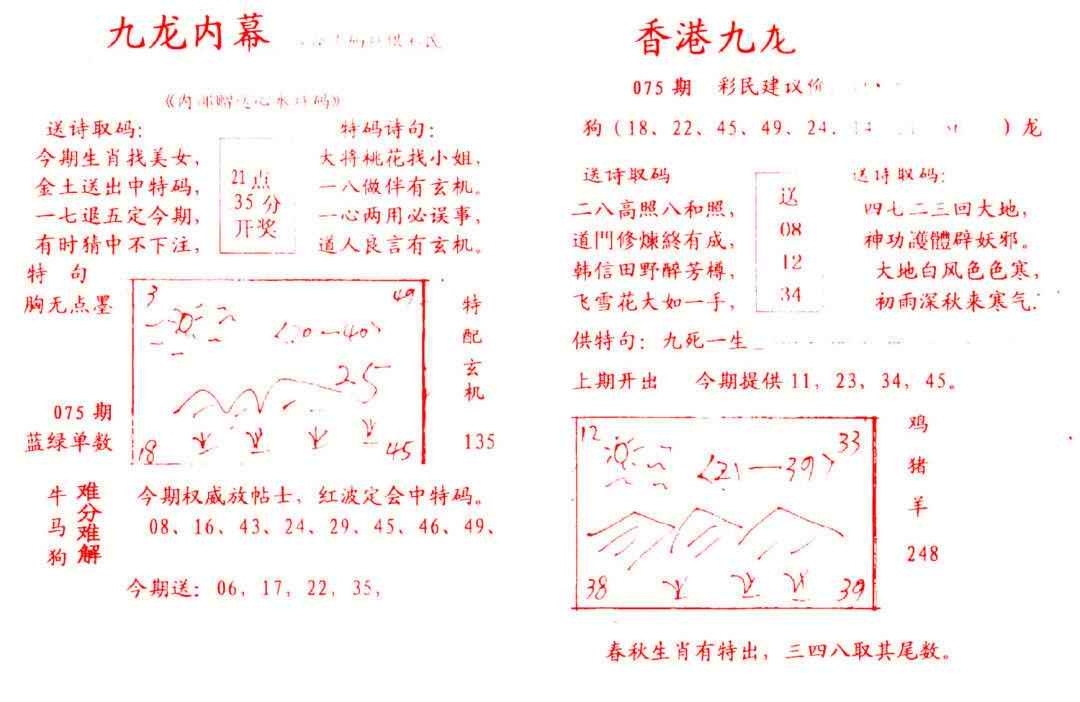 九龙内幕
送诗取码：
今期生肖找美女，
金土送出中特码，
一七退五定今期，
有时猜中不下注，
21点
35分
开奖
特码诗句：
大将桃花找小姐，
一八做伴有玄机。
一心两用必误事，
道人良言有玄机。
特 句
胸无点墨
075期
蓝绿单数
3
49
〈20—40〉
25
18
45
特
配
玄
机
135
牛
马
狗
难
分
难
解
今期权威放帖士，红波定会中特码。
08、16、43、24、29、45、46、49、
今期送：06，17，22，35，
香港九龙
075 期 彩民建议价
狗（18、22、45、49、24、 ）龙
送诗取码
二八高照八和照，
道門修煉終有成，
韩信田野醉芳樽，
飞雪花大如一手，
送
08
12
34
送诗取码：
四七二三回大地，
神功護體辟妖邪。
大地白风色色寒，
初雨深秋来寒气.
供特句：九死一生
上期开出 今期提供11，23，34，45。
12
33
〈21—39〉
38
39
鸡
猪
羊
248
春秋生肖有特出，三四八取其尾数。